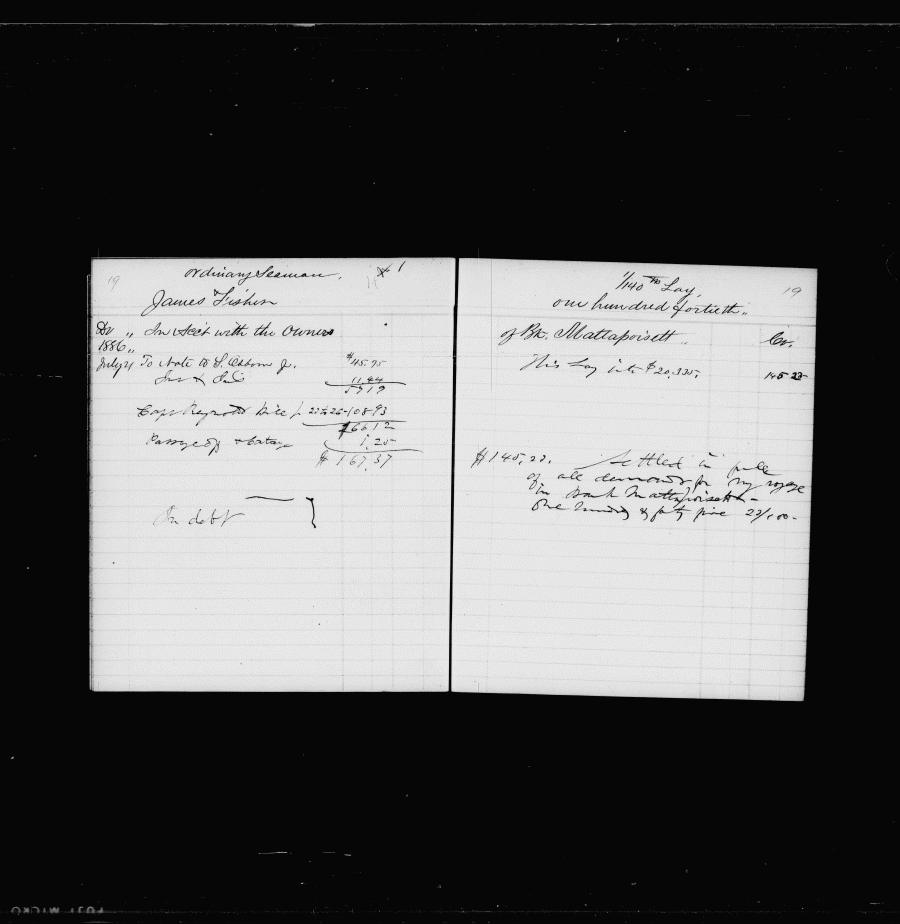 19
ordinary Seeman,
# 1
James Fisher
Dr „ In Acct with the Owners
1886 „
July 21 To Note to S. Osborn Jr. $45.75
Ins & Int 11.44
57 19
Capt Reynolds Bill 108.93
166 12
Passage 1,25
$ 167,37
In debt
1/140 th Lay,
19
one hundred fortieth „
of Bk. Mattapoisett „ Cr.
His Lay in to $20,335. 145 25
$145,25. Settled in full
of all demands for my voyage
in Bark Mattapoisett
one hundred & forty five 25/100 -